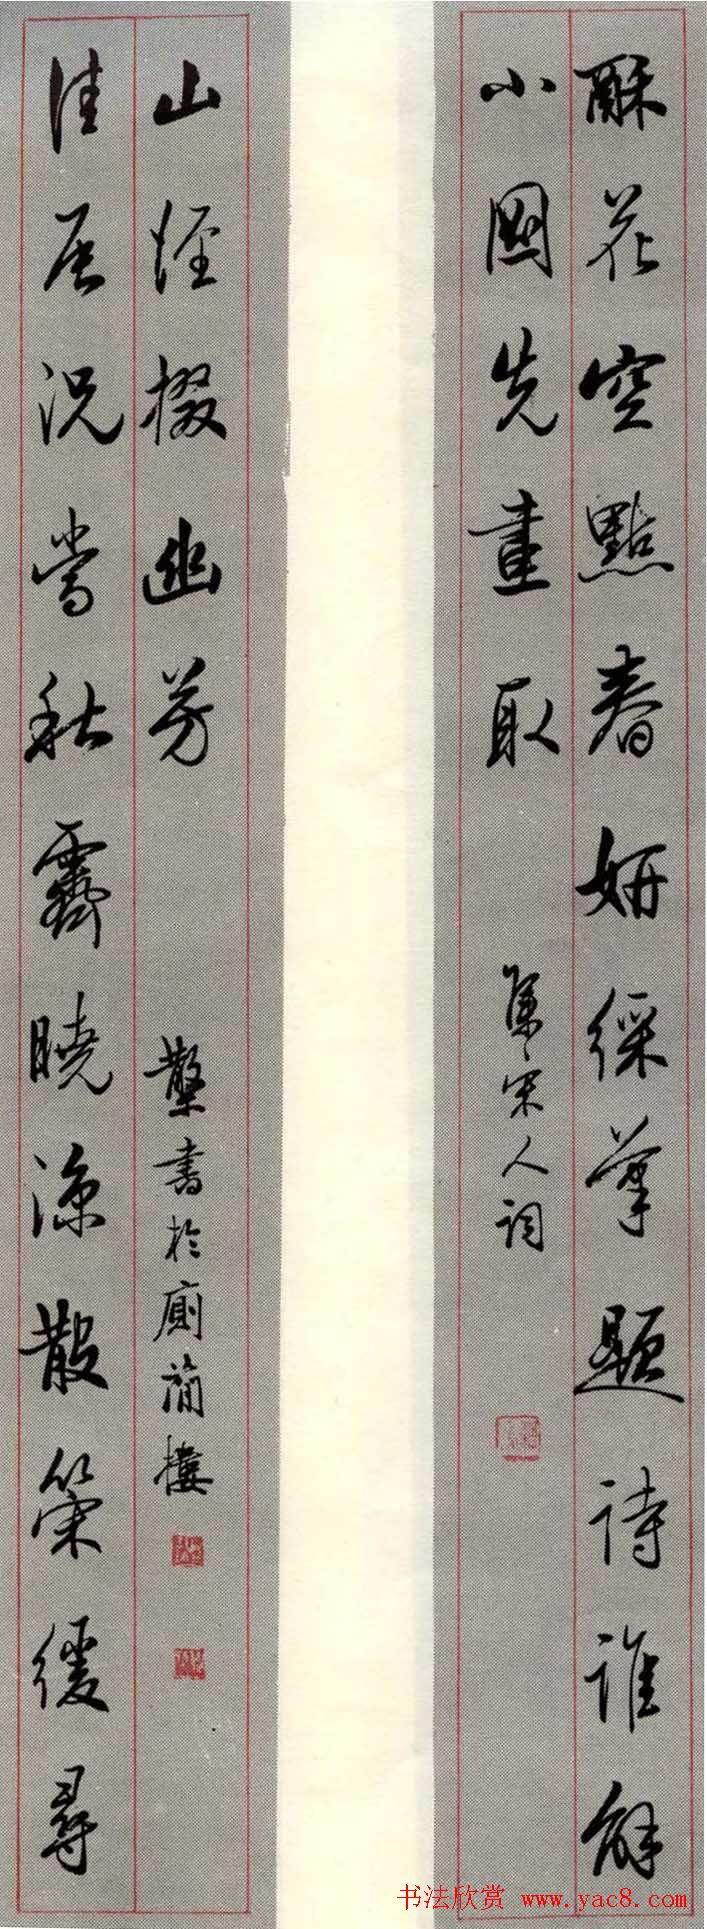 酥花空點春妍綵筆題詩誰解
小圖先畫取
集宋人詞
佳辰況當秋霽曉涼散策緩尋
山徑掇幽芳
散木書於廁簡樓
书法欣赏 www.yac8.com